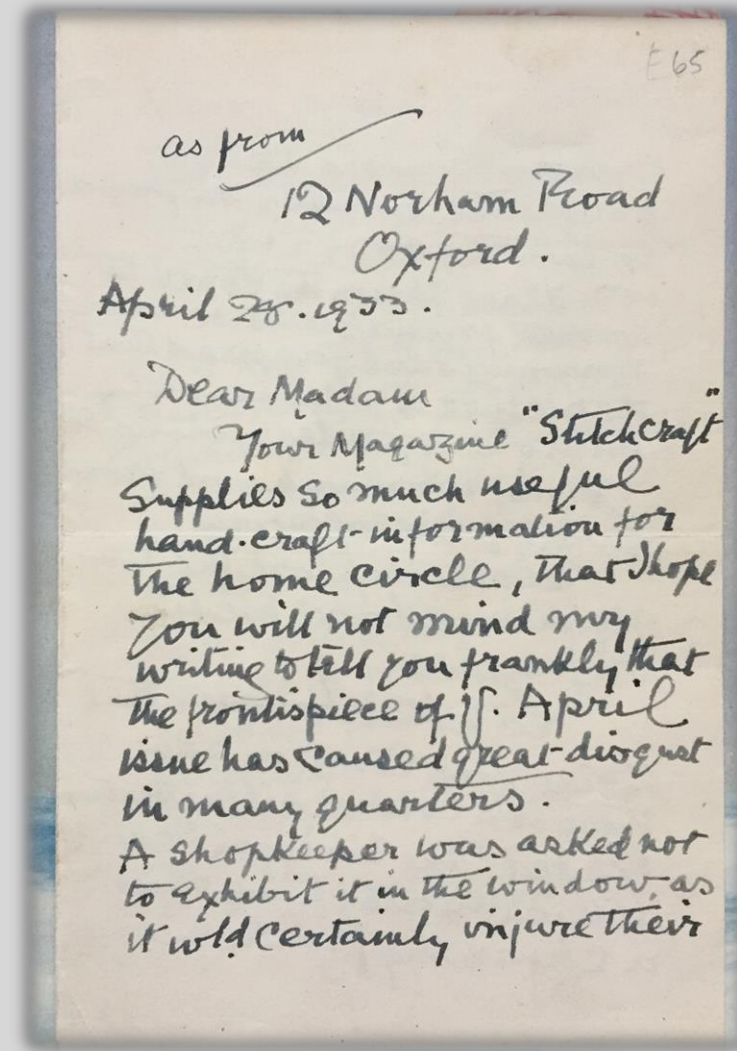 E65
as from
12 Norham Road
Oxford.
April 28. 1933.
Dear Madam
Your Magazine "Stitchcraft"
Supplies so much useful
hand-craft-information for
the home circle, that I hope
you will not mind my
writing to tell you frankly that
the frontispiece of yr. April
issue has caused great disgust
in many quarters.
A Shopkeeper was asked not
to exhibit it in the window, as
it wld certainly injure their